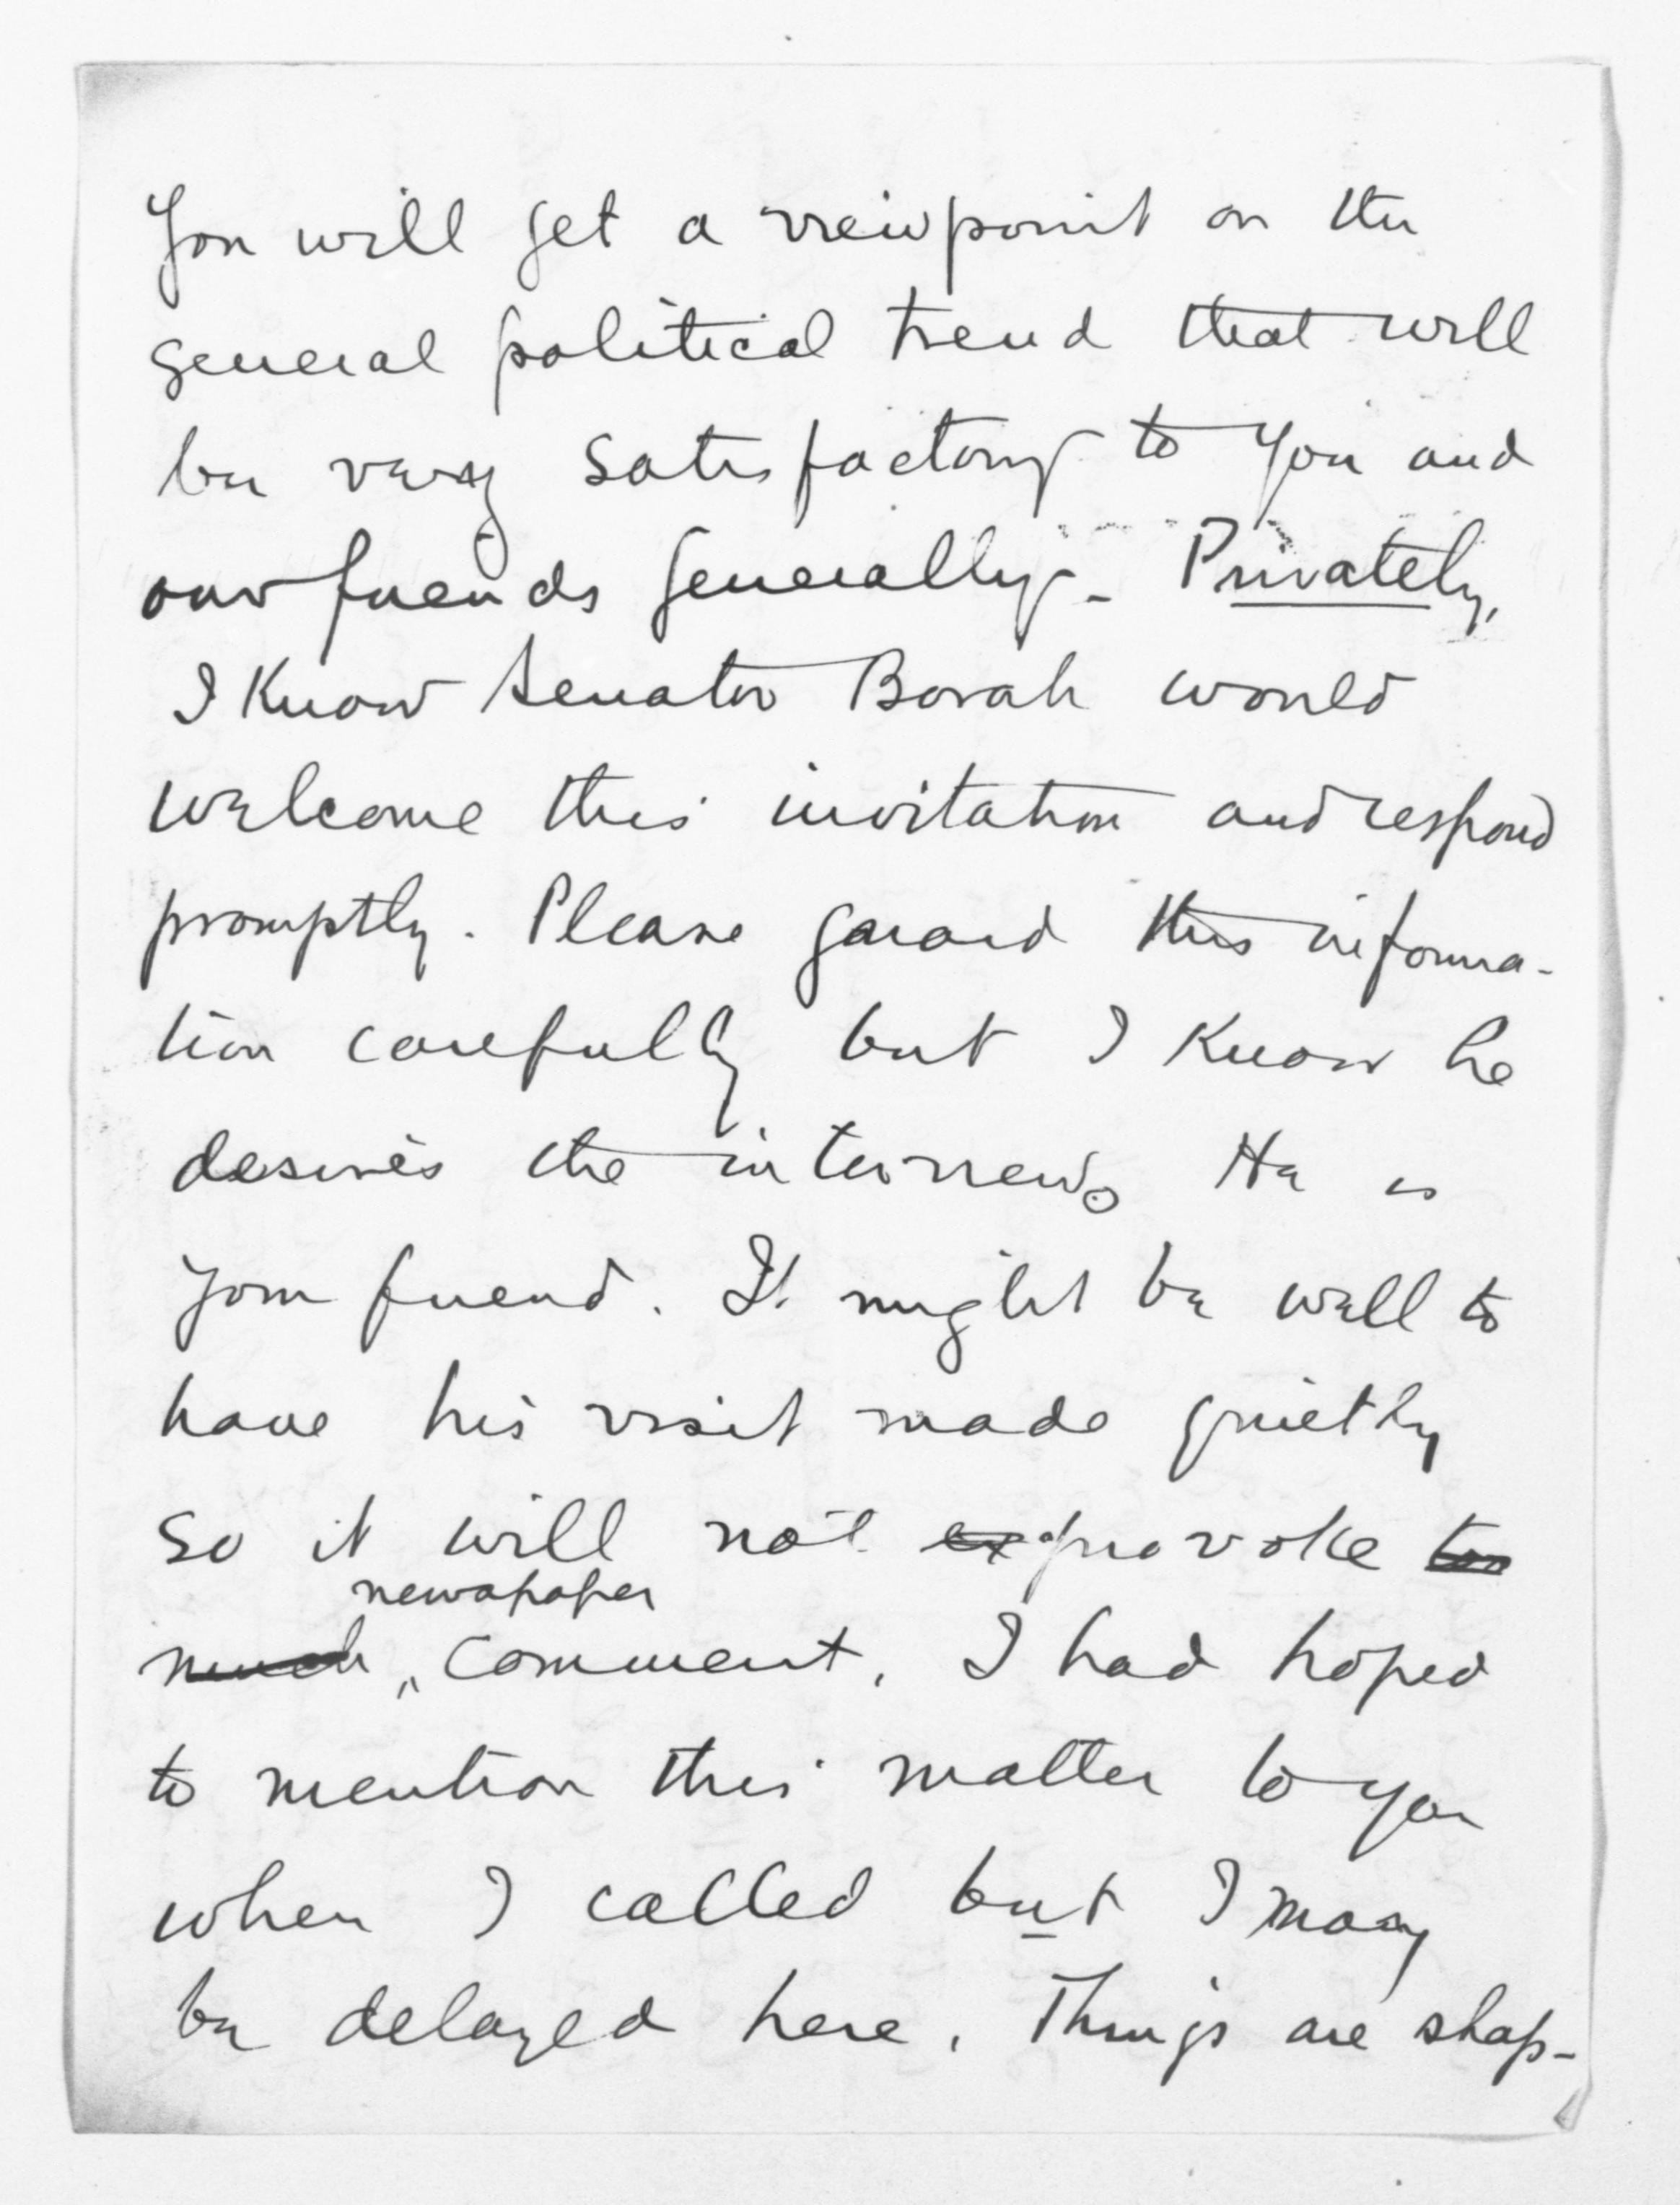 You will get a viewpoint on the
general political trend that will
be very satisfactory to you and
our friends generally - Privately,
I know Senator Borah would
welcome this invitation and respond
promptly. Please guard this informa-
tion carefully but I know he
desires the interview. He is
your friend. It might be well to
have his visit made quietly
so it will not ex provoke too
newspaper
much comment, I had hoped
to mention this matter to you
when I called but I may
be delayed here. Things are shap-